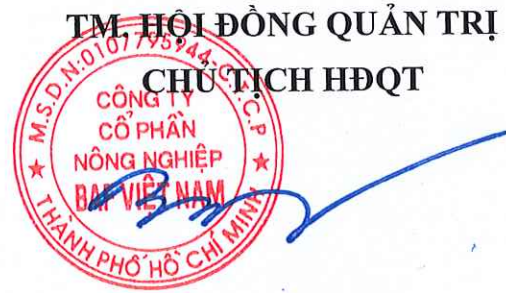 TM. HỘI ĐỒNG QUẢN TRỊ
CHỦ TỊCH HĐQT
M.S.D.N:0107795944-C.T.C.P
CÔNG TY
CỔ PHẦN
NÔNG NGHIỆP
BAF VIỆT NAM
THÀNH PHỐ HỒ CHÍ MINH